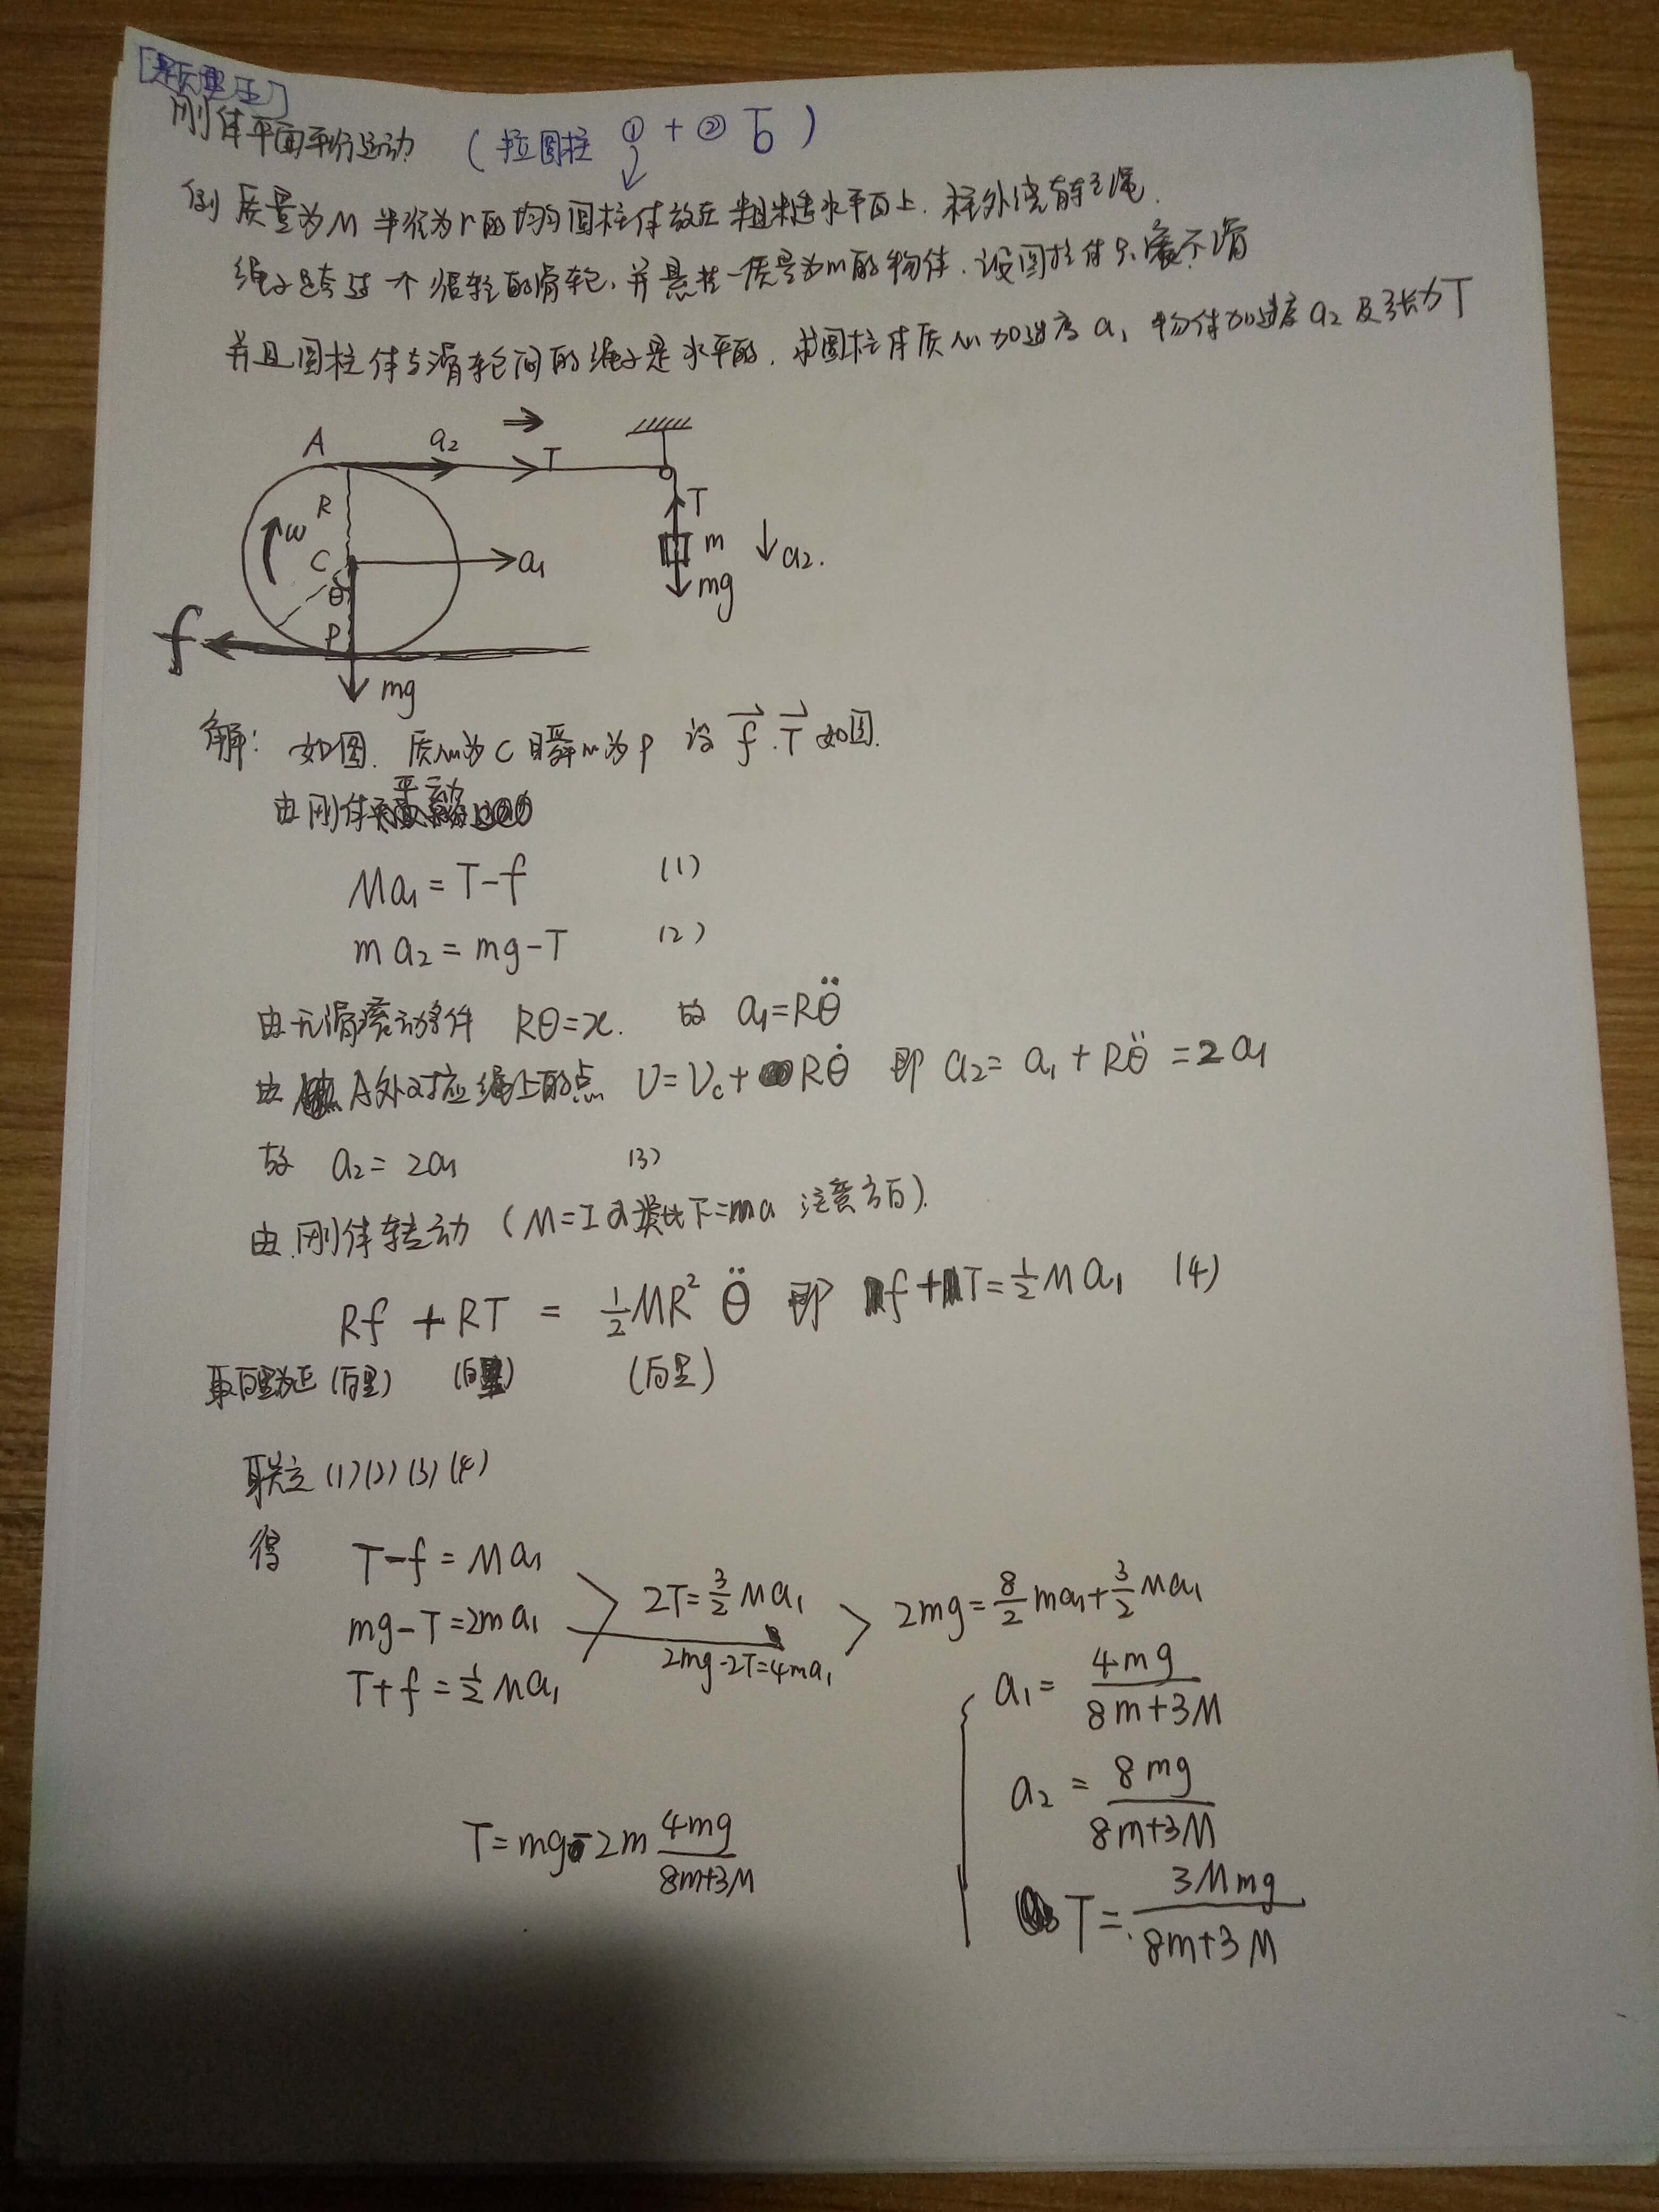 [题型五]
刚体平面平行运动 (拉圆柱 ① + ② T)
例 质量为M 半径为r的均匀圆柱体放在粗糙水平面上. 柱外绕有轻绳.
绳子跨过一个很轻的滑轮, 并悬挂一质量为m的物体. 设圆柱体只滚不滑
并且圆柱体与滑轮间的绳子是水平的. 求圆柱体质心加速度 a₁ 物体加速度 a₂ 及张力T
A a₂ T
R
T
ω C a₁ m a₂.
θ mg
f P
mg
解: 如图. 质心为C 瞬心为P 设 f⃗. T⃗ 如图.
由刚体平动
Ma₁ = T-f (1)
ma₂ = mg-T (2)
由无滑滚动条件 Rθ=x. 故 a₁=Rθ̈
由 A处对应绳上的点 v=v_c+Rθ̇ 即 a₂= a₁ + Rθ̈ =2a₁
故 a₂ = 2a₁ (3)
由刚体转动 (M=Iα类比F=ma 注意方向).
Rf + RT = ½MR² θ̈ 即 f+T=½Ma₁ (4)
取向里为正(向里) (向里) (向里)
联立 (1)(2)(3)(4)
得 T-f = Ma₁
mg-T=2ma₁
T+f=½Ma₁
2T=3/2 Ma₁
2mg-2T=4ma₁
2mg=8/2 ma₁+3/2 Ma₁
a₁= 4mg/(8m+3M)
a₂ = 8mg/(8m+3M)
T=mg-2m 4mg/(8m+3M)
T= 3Mmg/(8m+3M)